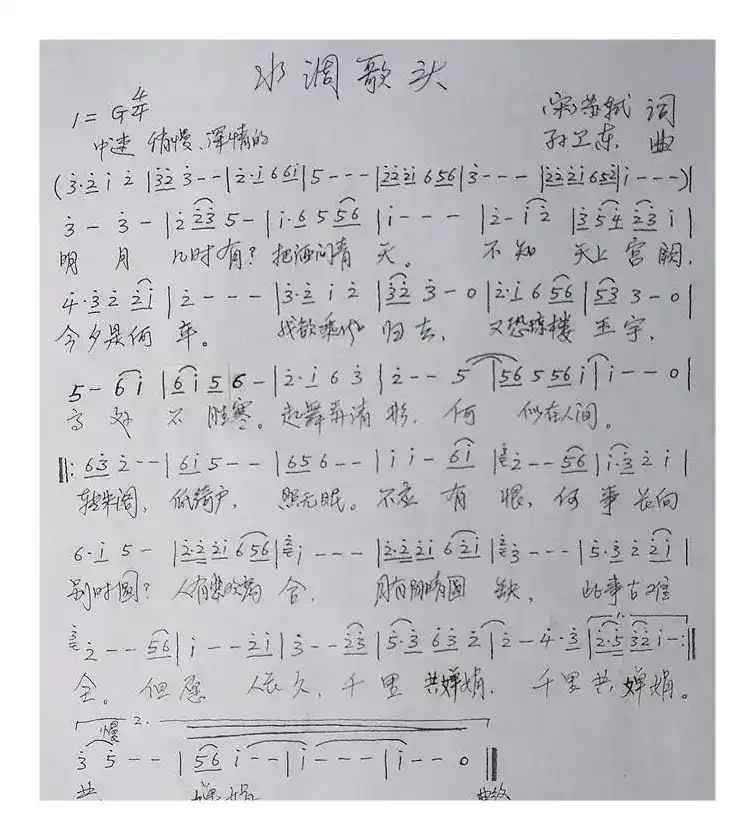 水调歌头
1=G 4/4
(宋)苏轼 词
中速 稍慢、深情的
孙卫东 曲
(3̇·2̇ 1̇ 2̇ |3̇2̇ 3̇ - - |2̇·1̇ 6 6 1̇|5 - - - |2̇2̇2̇1̇ 6 56|3̇ - - - |2̇2̇2̇1̇ 6 52̇|1̇ - - -)|
3̇ - 3̇ - |1̇ 2̇ 2̇3̇ 5 - |1̇·6 5 56 |1̇ - - - |2̇ - 1̇ 2̇ |3̇ 5̇ 4̇ 2̇3̇ 1̇|
明 月 几时有？把酒问青 天。 不 知 天上 宫 阙，
4̇·3̇ 2̇ 2̇1̇ |2̇ - - - |3̇·2̇ 1̇ 2̇ |3̇2̇ 3̇ - 0 |2̇·1̇ 6 56 |53̇ 3̇ - 0|
今夕是何 年。 我欲乘 归 去， 又恐琼楼 玉 宇，
5 - 6 1̇ |6 1̇ 5 6 - |2̇·1̇ 6 3̇ |2̇ - - 5 |56 5 56 1̇ |1̇ - - 0|
高 处 不 胜寒。起舞弄清 影， 何 似在人间。
‖: 63̇ 2̇ - - |61̇ 5 - - |65 6 - - |1̇ 1̇ - 61̇ |2̇ - - 56 |1̇·3̇ 2̇ 1̇|
转朱阁， 低绮户， 照无眠。不应 有 恨，何 事 长向
6·1̇ 5 - |2̇·2̇ 2̇1̇ 6 56|1̇ - - - |2̇·2̇ 2̇1̇ 6 2̇1̇|3̇ - - - |5̇·3̇ 2̇ 2̇1̇|
别时圆？ 人有悲欢离 合， 月有阴晴圆 缺， 此事古难
2̇ - - 56|1̇ - - 2̇1̇|3̇ - - 2̇3̇|5̇·3̇ 63̇ 2̇|2̇ - 4̇·3̇|2̇·5 3̇2̇ 1̇ - :‖
全。 但愿 人长久，千 里 共婵娟， 千里共 婵娟。
慢 2.
3̇ 5̇ - - |56 1̇ - - |1̇ - - - |1̇ - - 0‖
共 婵娟